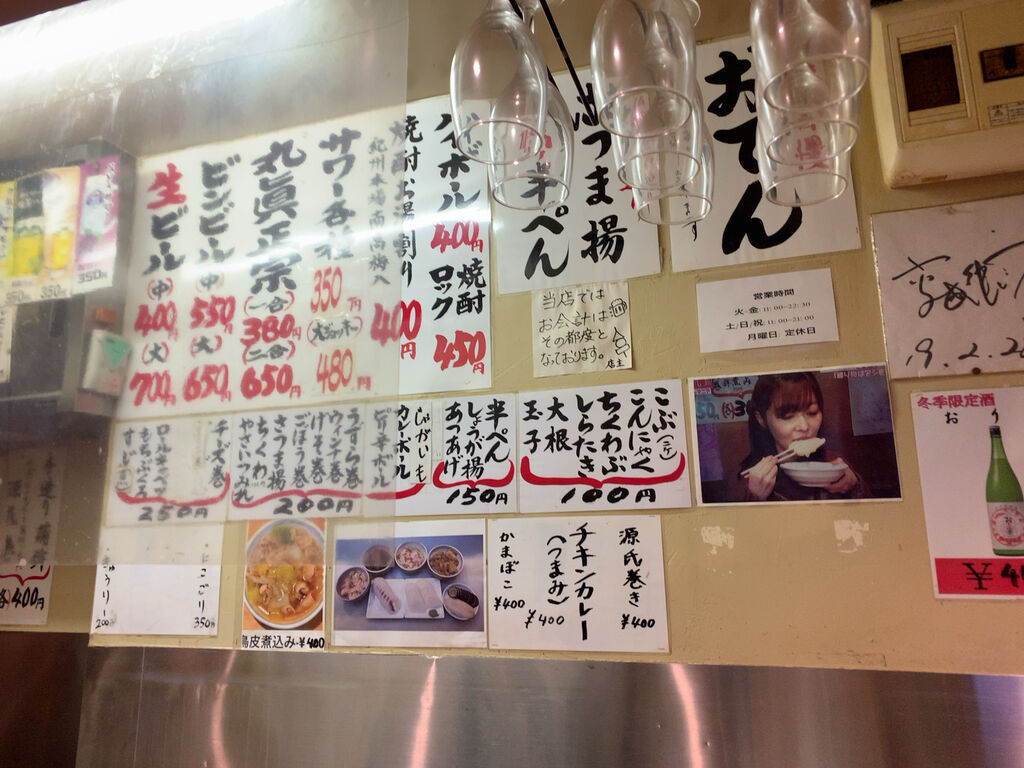 おでん
さつま揚
半ぺん
ハイボール
400円
焼酎
ロック
450円
焼酎お湯割り
400円
紀州本場南高梅入
サワー各種
350円
大ジョッキ
480円
丸眞正宗
(一合)
380円
(二合)
650円
ビンビール
(中)
550円
(大)
650円
生ビール
(中)
400円
(大)
700円
350円
350円
当店では
お会計は
その都度と
なっております。
店主
営業時間
火-金: 11:00-22:30
土/日/祝: 11:00-21:00
月曜日: 定休日
19.2.2
こぶ(二ケ)
こんにゃく
ちくわぶ
しらたき
大根
玉子
100円
半ぺん
しょうが揚
あつあげ
150円
じゃがいも
カレーボール
ピリ辛ボール
うずら巻
ウィンナー巻
げそ巻
ごぼう巻
さつま揚
ちくわ
やさいつみれ
200円
チーズ巻
ロールキャベツ
もちぶくろ
すじ
250円
冬季限定酒
お り
源氏巻き
¥400
チキンカレー
(つまみ)
¥400
かまぼこ
¥400
鳥皮煮込み-¥400
にこごり
350円
きゅうり
200
400円